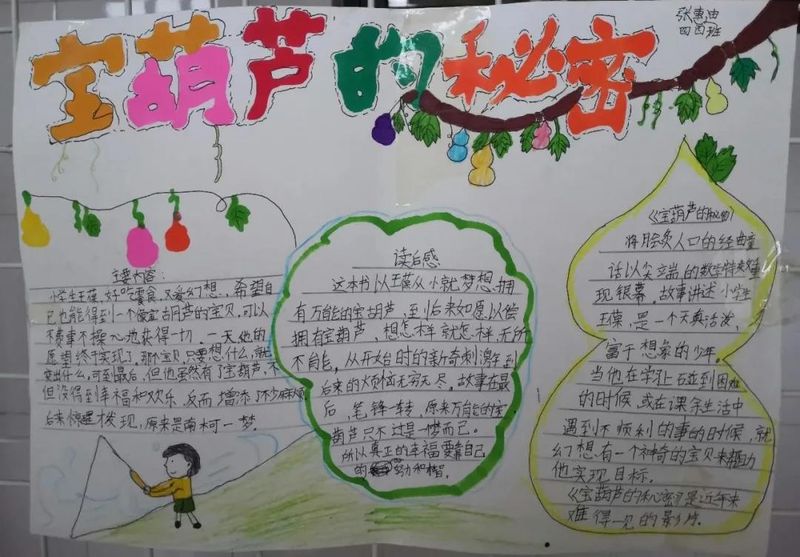 宝葫芦的秘密
张惠迪
四四班
主要内容:
小学生王葆,好吃零食,又爱幻想,希望自
己也能得到一个像宝葫芦的宝贝,可以
不费事不操心地获得一切。一天他的
愿望终于实现了,那个宝贝,只要想什么,就
变出什么,可到最后,但他虽然有了宝葫芦,不
但没得到幸福和欢乐,反而增添了不少麻烦,
后来惊醒发现,原来是南柯一梦。
读后感
这本书以王葆从小就梦想拥
有万能的宝葫芦,到后来如愿以偿
拥有宝葫芦,想怎样就怎样,无所
不能,从开始时的新奇刺激,到
后来的烦恼无穷无尽,故事在最
后,笔锋一转,原来万能的宝
葫芦只不过是一梦而已。
所以真正的幸福要靠自己
的努力和
《宝葫芦的秘密》
将脍炙人口的经典童
话以尖端的数字特来重
现银幕,故事讲述小学生
王葆,是一个天真活泼,
富于想象的少年。
当他在学业碰到困难
的时候,或在课余生活中
遇到不顺利的事的时候,就
幻想有一个神奇的宝贝来
他实现目标。
《宝葫芦的秘密》是近年来
难得一见的影片。